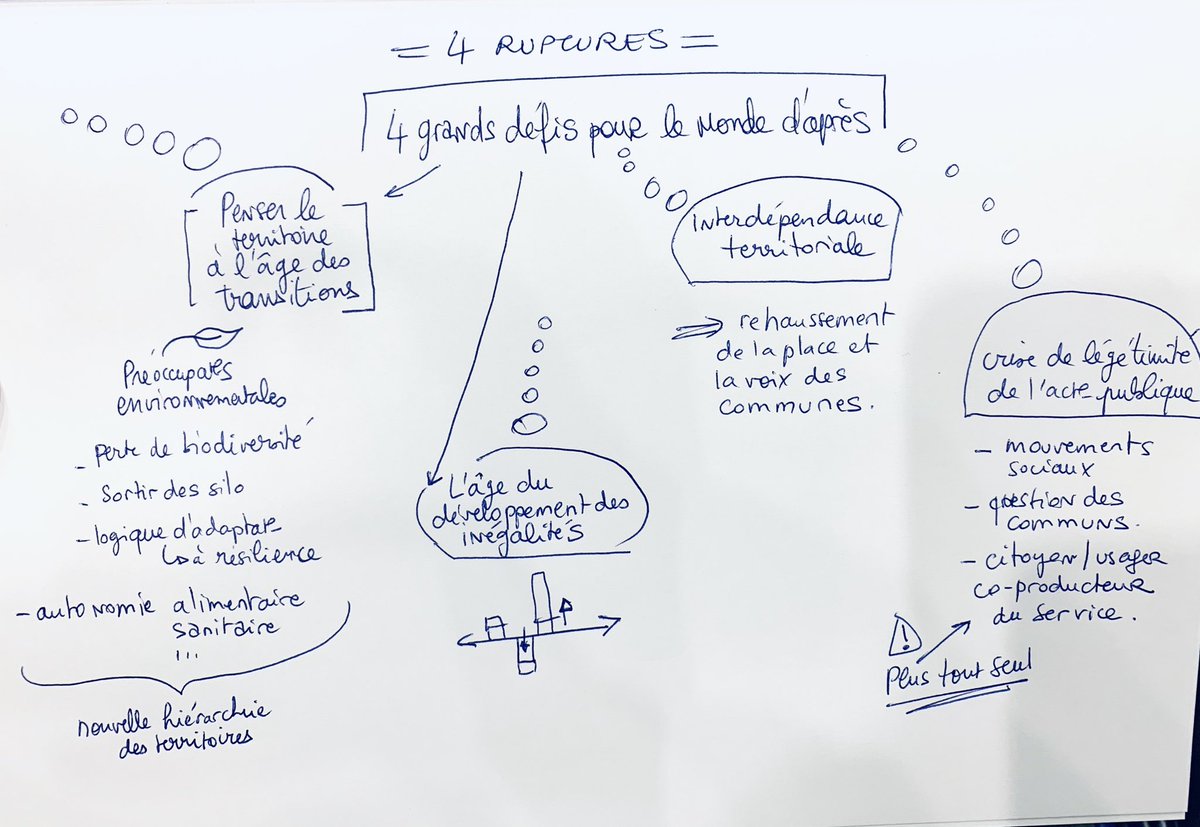 = 4 RUPTURES =
4 grands défis pour le monde d'après
Penser le
territoire
à l'âge des
transitions
Préoccupat°s
environnementales
- perte de biodiversité
- Sortir des silo
- logique d'adaptat°
↳ à résilience
- autonomie alimentaire
sanitaire
...
nouvelle hiérarchie
des territoires
L'âge du
développement des
inégalités
interdépendance
territoriale
⇒ rehaussement
de la place et
la voix des
communes.
crise de légétimité
de l'acte publique
- mouvements
sociaux
- question des
communs.
- citoyen/usager
co-producteur
du service.
!
Plus tout seul